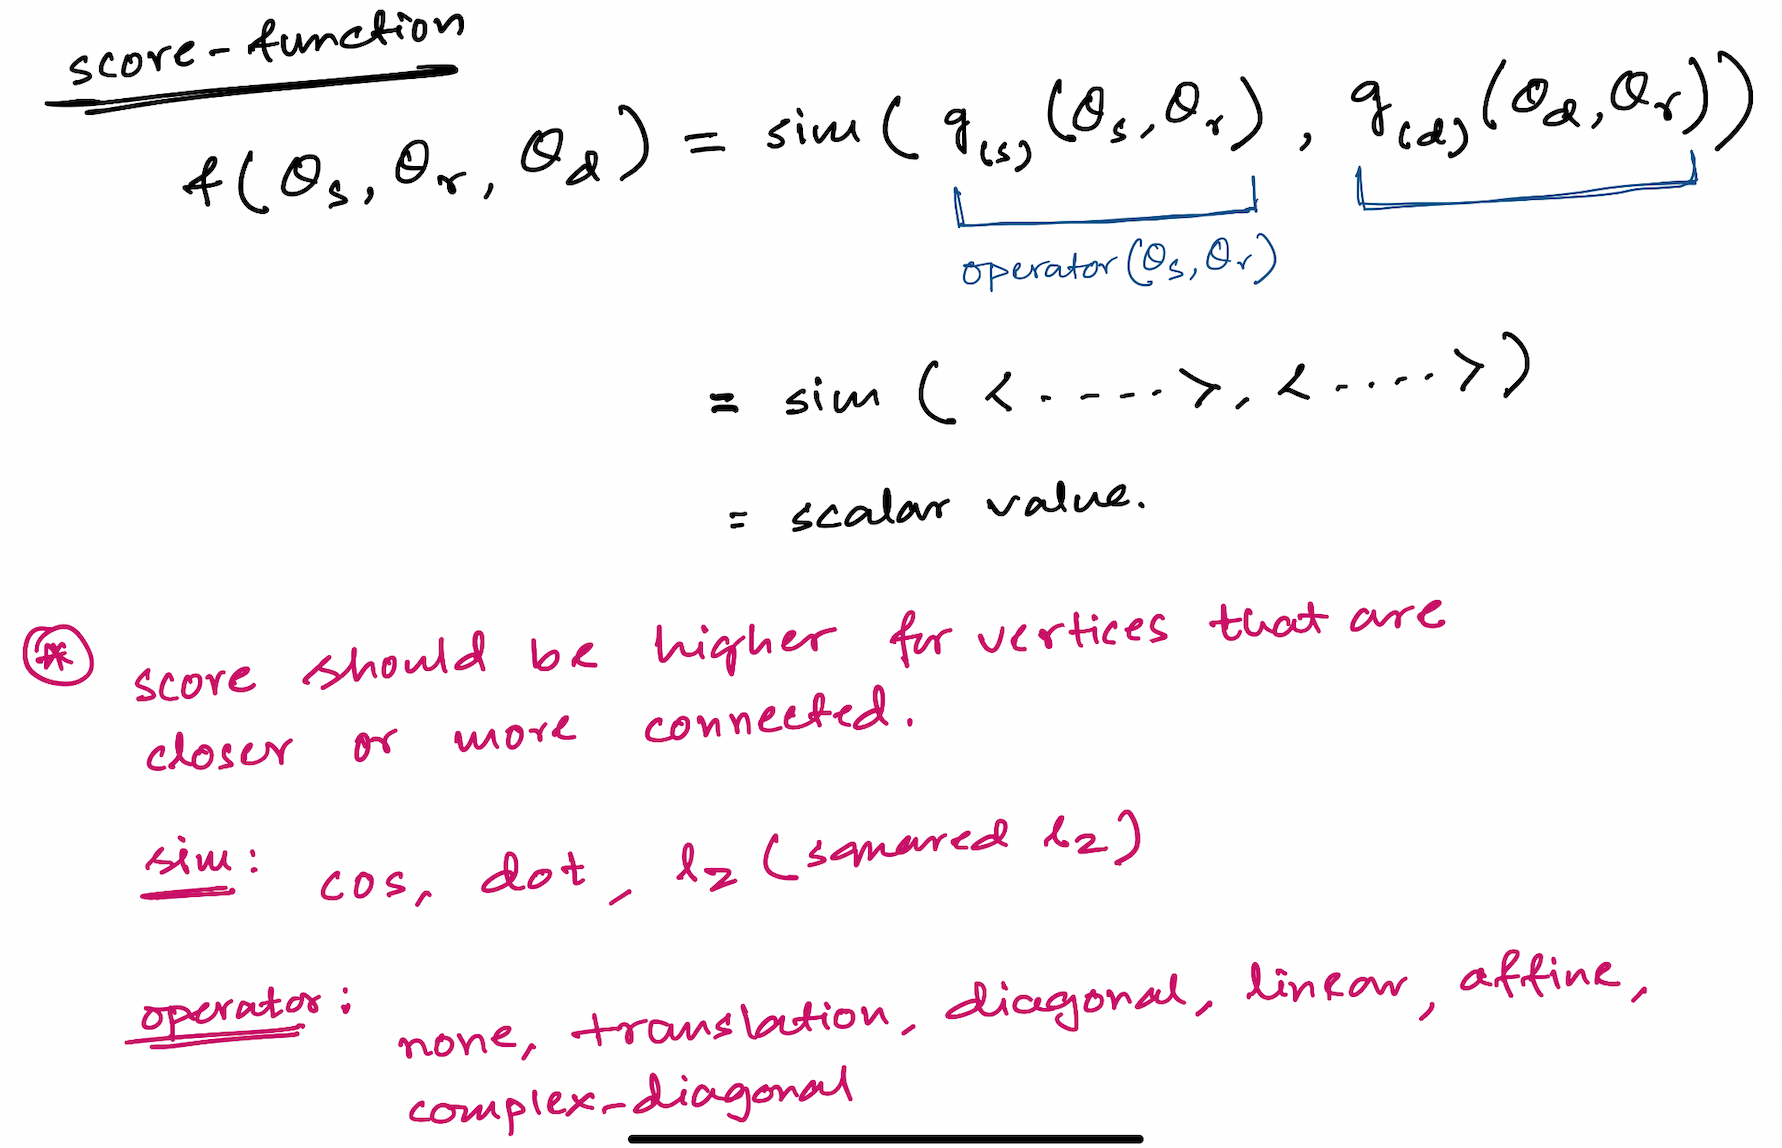 score-function
f(θs, θr, θd) = sim( g(s)(θs, θr), g(d)(θd, θr))
operator(θs, θr)
= sim ( <.----.>, <....>)
= scalar value.
* score should be higher for vertices that are
closer or more connected.
sim: cos, dot, l2 (squared l2)
operator: none, translation, diagonal, linear, affine,
complex-diagonal